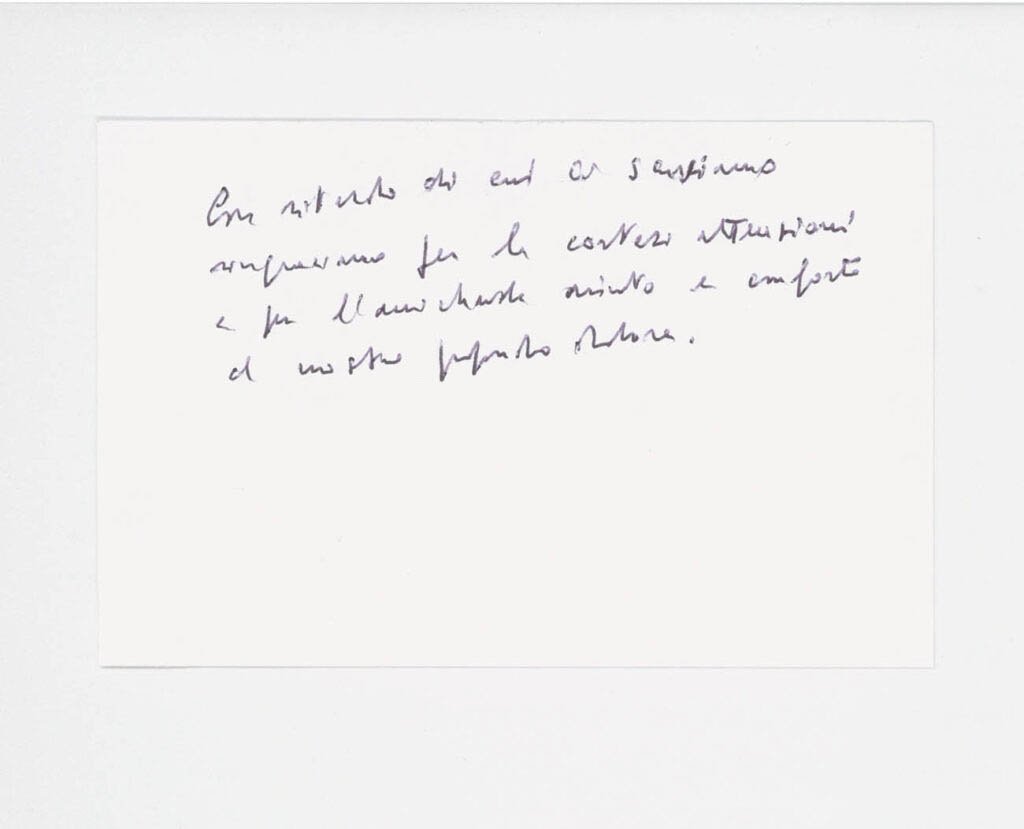 Con ritardo di cui ci scusiamo
ringraziamo per le cortesi attenzioni
e per l'amichevole aiuto e conforto
al nostro profondo dolore.